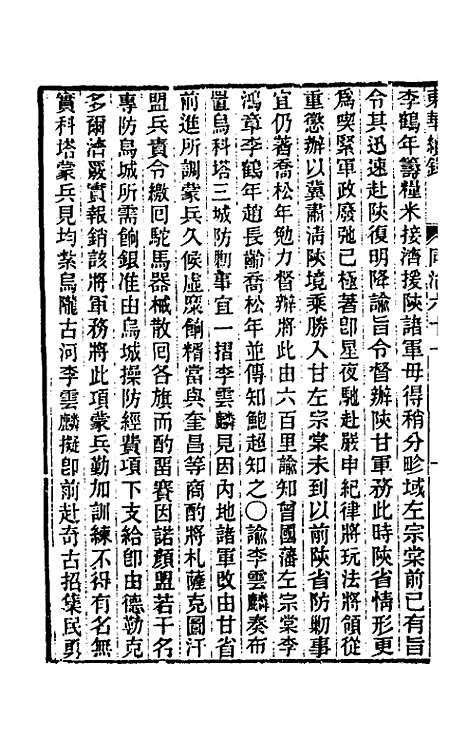 東華續錄　同治六十一
李鶴年籌糧米接濟援陝諸軍毋得稍分畛域左宗棠前已有旨
令其迅速赴陝復明降諭旨令督辦陝甘軍務此時陝省情形更
爲喫緊軍政廢弛已極著卽星夜馳赴嚴申紀律將玩法將領從
重懲辦以冀肅淸陝境乘勝入甘左宗棠未到以前陝省防勦事
宜仍著喬松年勉力督辦將此由六百里諭知曾國藩左宗棠李
鴻章李鶴年趙長齡喬松年並傳知鮑超知之〇諭李雲麟奏布
置烏科塔三城防勦事宜一摺李雲麟見因內地諸軍改由甘省
前進所調蒙兵久候虛糜餉糈當與奎昌等商酌將札薩克圖汗
盟兵責令繳回駝馬器械散回各旗而酌畱賽因諾顏盟若干名
專防烏城所需餉銀准由烏城操防經費項下支給卽由德勒克
多爾濟覈實報銷該將軍務將此項蒙兵勤加訓練不得有名無
實科塔蒙兵見均紮烏隴古河李雲麟擬卽前赴奇古招集民勇